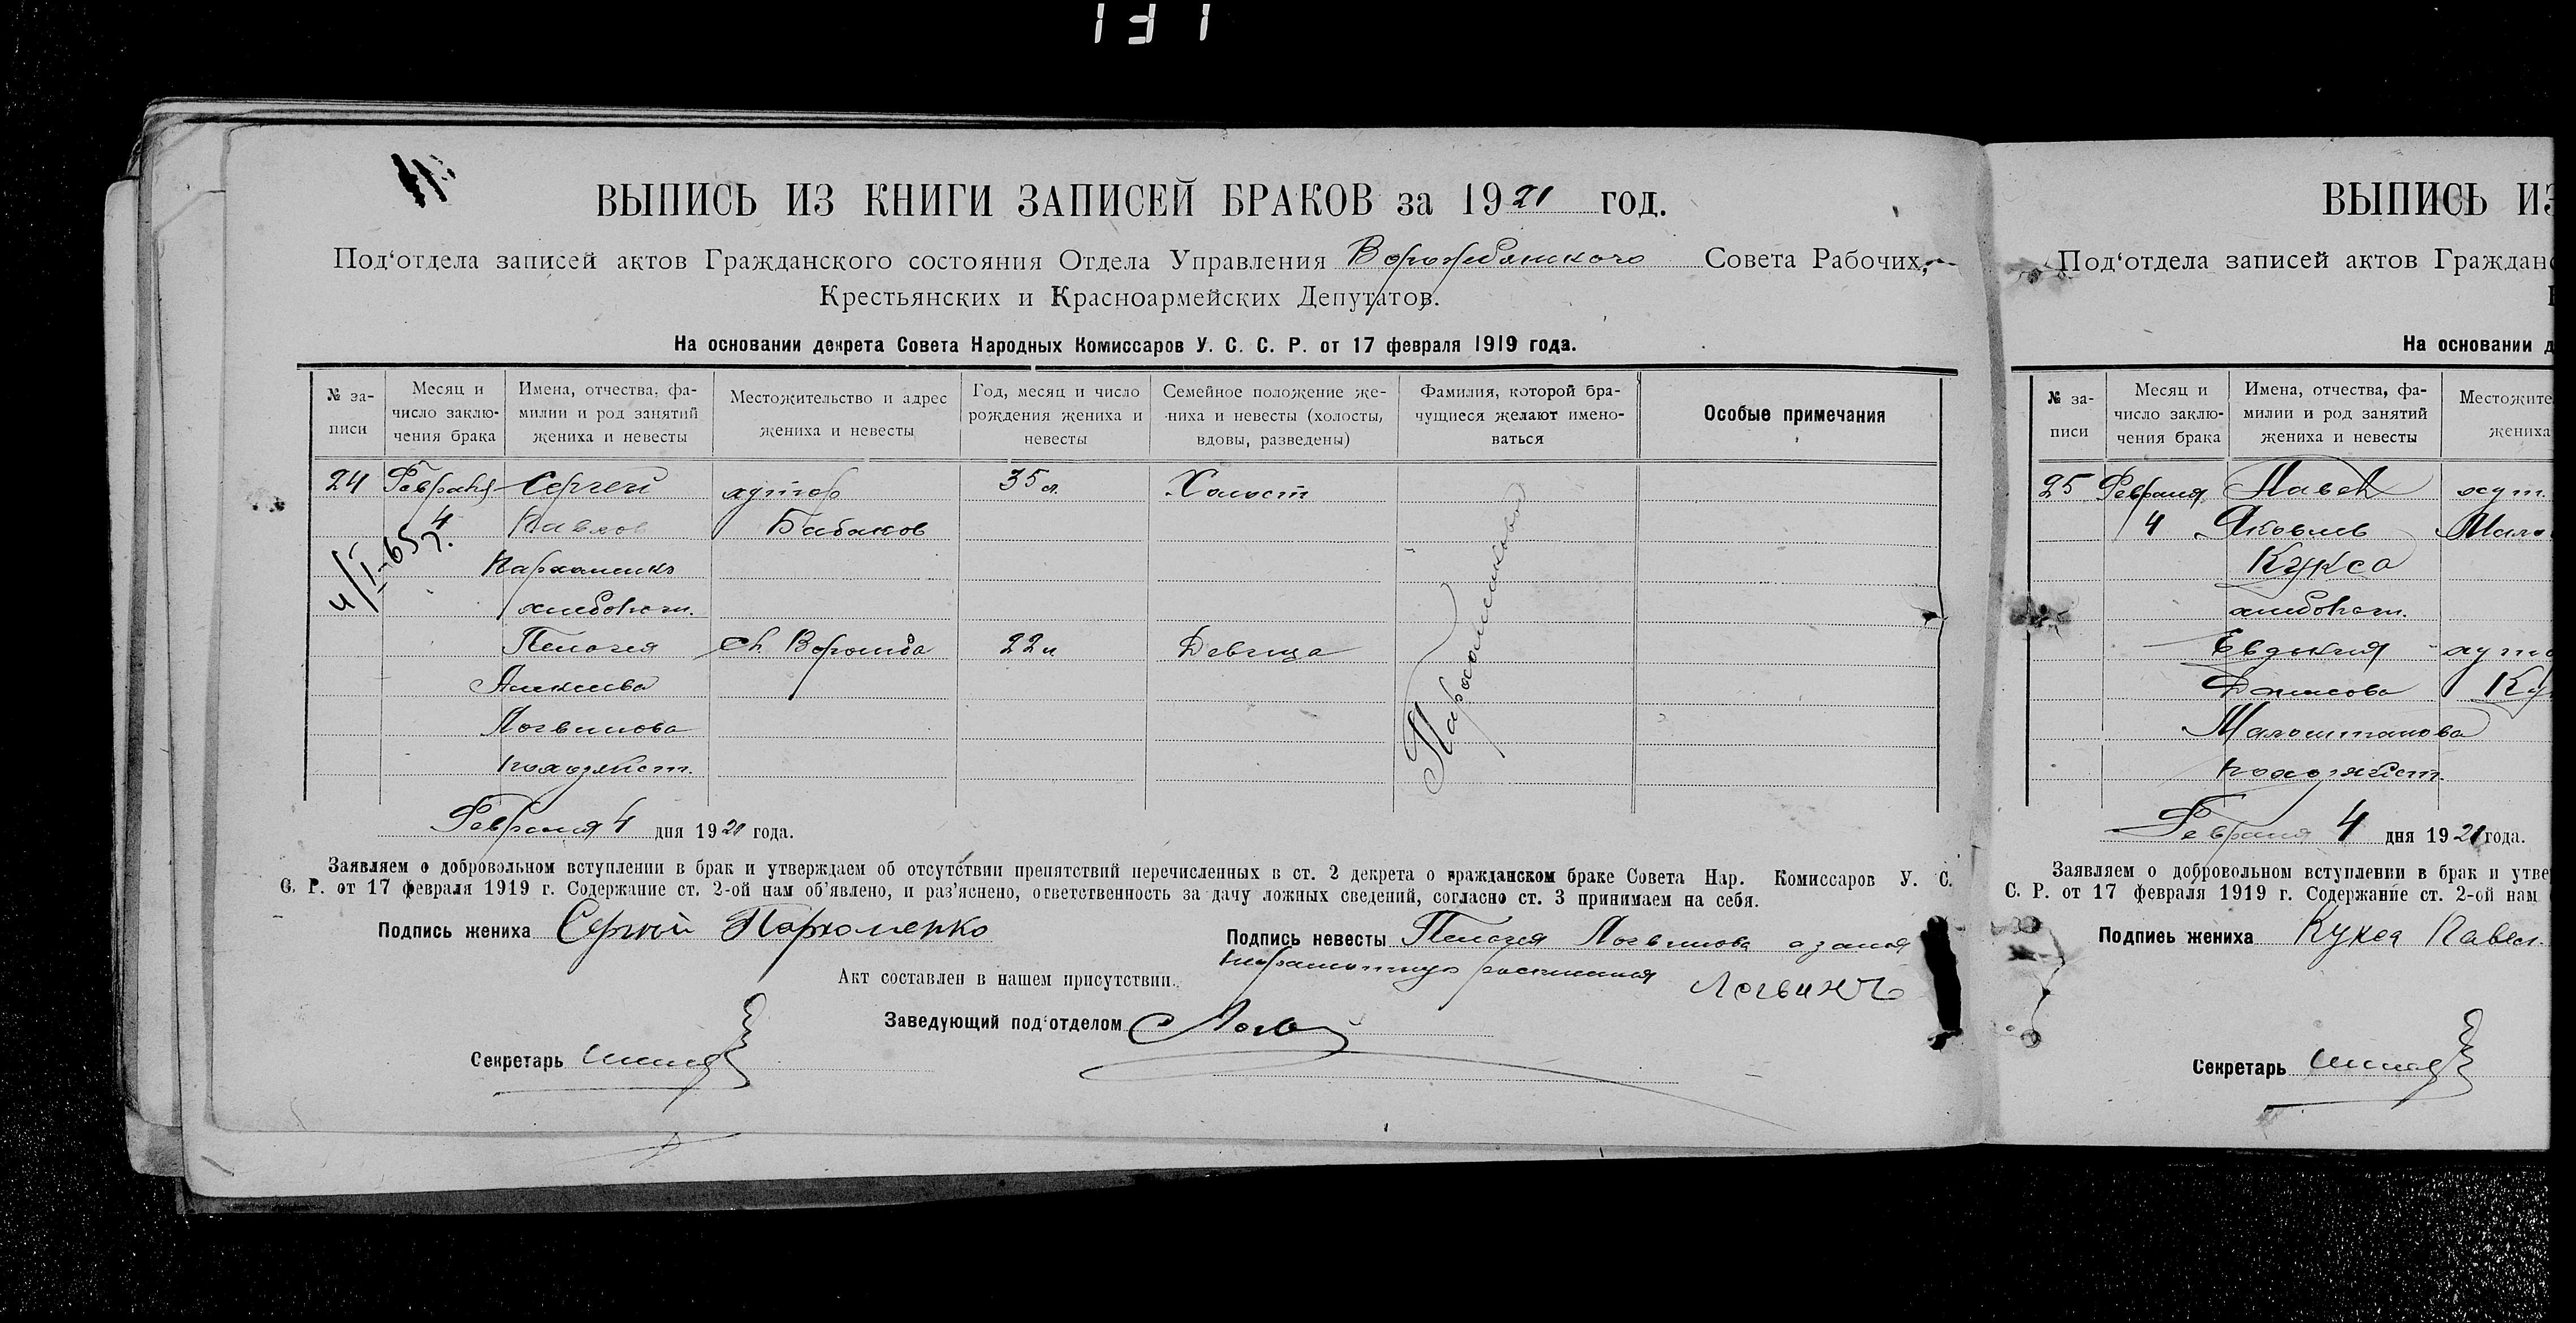 131
ВЫПИСЬ ИЗ КНИГИ ЗАПИСЕЙ БРАКОВ за 1921 год.
Под‘отдела записей актов Гражданского состояния Отдела Управления Ворожбянского Совета Рабочих,
Крестьянских и Красноармейских Депутатов.
На основании декрета Совета Народных Комиссаров У. С. С. Р. от 17 февраля 1919 года.
№ за-
писи
Месяц и
число заклю-
чения брака
Имена, отчества, фа-
милии и род занятий
жениха и невесты
Местожительство и адрес
жениха и невесты
Год, месяц и число
рождения жениха и
невесты
Семейное положение же-
ниха и невесты (холосты,
вдовы, разведены)
Фамилия, которой бра-
чущиеся желают имено-
ваться
Особые примечания
24 Февраля Сергей хутор 35 л. Холост
4 Павлов Бабаков
Пархоменко
хлебопаш.
Пелагея сл. Ворожба 22 л Девица
Алексеева
Логвинова
домохозяйст.
Пархоменкова
4/I-65 г.
Февраля 4 дня 1921 года.
Заявляем о добровольном вступлении в брак и утверждаем об отсутствии препятствий перечисленных в ст. 2 декрета о гражданском браке Совета Нар. Комиссаров У. С.
С. Р. от 17 февраля 1919 г. Содержание ст. 2-ой нам об‘явлено, и раз‘яснено, ответственность за дачу ложных сведений, согласно ст. 3 принимаем на себя.
Подпись жениха Сергей Пархоменко
Подпись невесты Пелагея Логвинова а за нея
неграмотную росписался
Логвин
Акт составлен в нашем присутствии.
Заведующий под‘отделом
Секретарь
ВЫПИСЬ ИЗ
Под‘отдела записей актов Граждан
На основании д
№ за-
писи
Месяц и
число заклю-
чения брака
Имена, отчества, фа-
милии и род занятий
жениха и невесты
Местожите
жениха
25 Февраля Павел хут.
4 Яковлев
Кукса
хлебопаш.
Евдокия хуто
Денисова
Малоштанова
домохозяйст.
Февраля 4 дня 1921 года.
Заявляем о добровольном вступлении в брак и утве
С. Р. от 17 февраля 1919 г. Содержание ст. 2-ой нам
Подпись жениха Кукса Павел
Секретарь